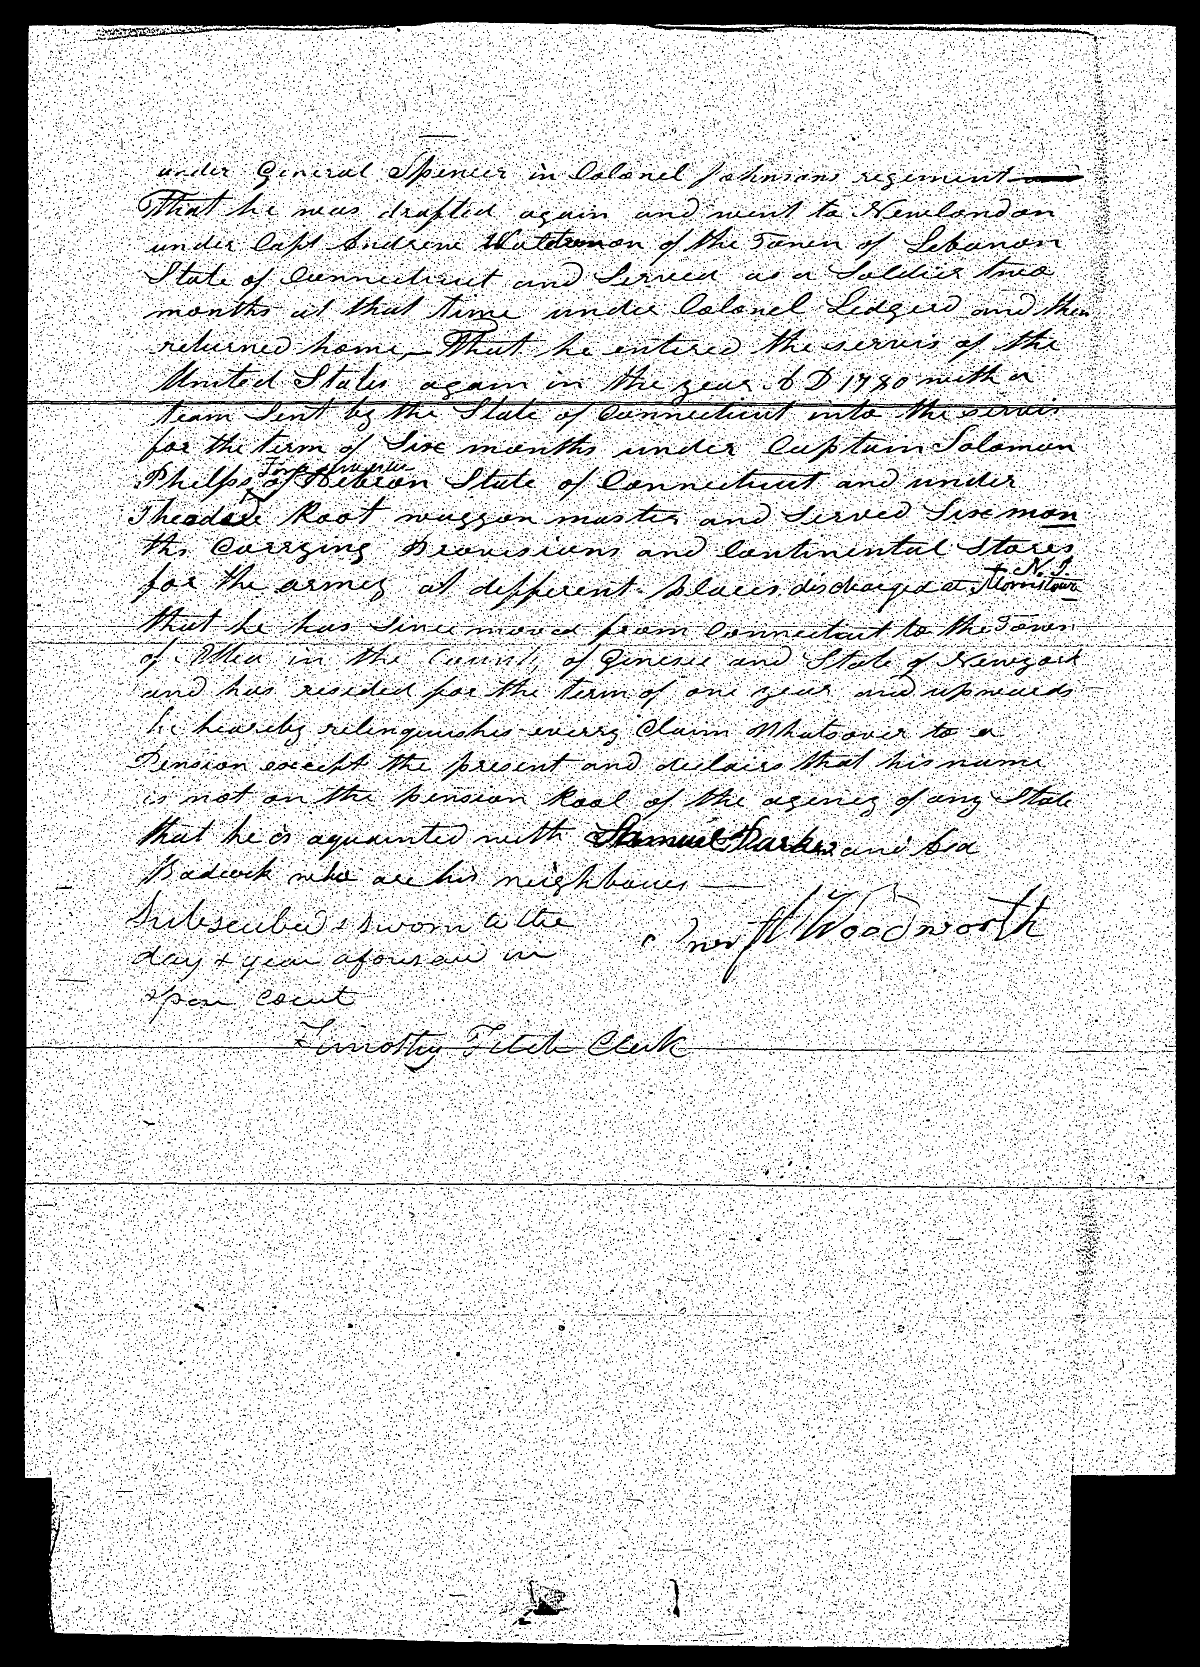 under General Spencer in Colonel Johnsons regiment
That he was drafted again and went to Newlondon
under Capt Andrew Waterman of the Town of Lebanon
State of Connecticut and Served as a Soldier two
months at that time under Colonel Ledgerd and then
returned home, — That he entered the servis of the
United States again in the year A D 1780 with a
team Sent by the State of Connecticut into the servis
for the term of Six months under Captain Solomon
Phelps of Hebron State of Connecticut and under
Theodore Root waggon master and Served Six mon
ths Carrying Provisions and Continental Stores
N. J.
for the army at defferent places discharged at Morristown
that he has Since moved from Connecticut to the Town
of Attica in the County of Genesee and State of Newyork
and has resided for the term of one year and upwards
he hearby relinquishes every Claim Whatsover to a
Pension except the present and declairs that his name
is not on the pension Rool of the agency of any State
that he is aquainted with Samuel Parker and Asa
Badcock who are his neighbours —
Subscribed & Sworn to the
day & year aforesaid in
open Court
Woodworth
Timothy Fitch Clerk